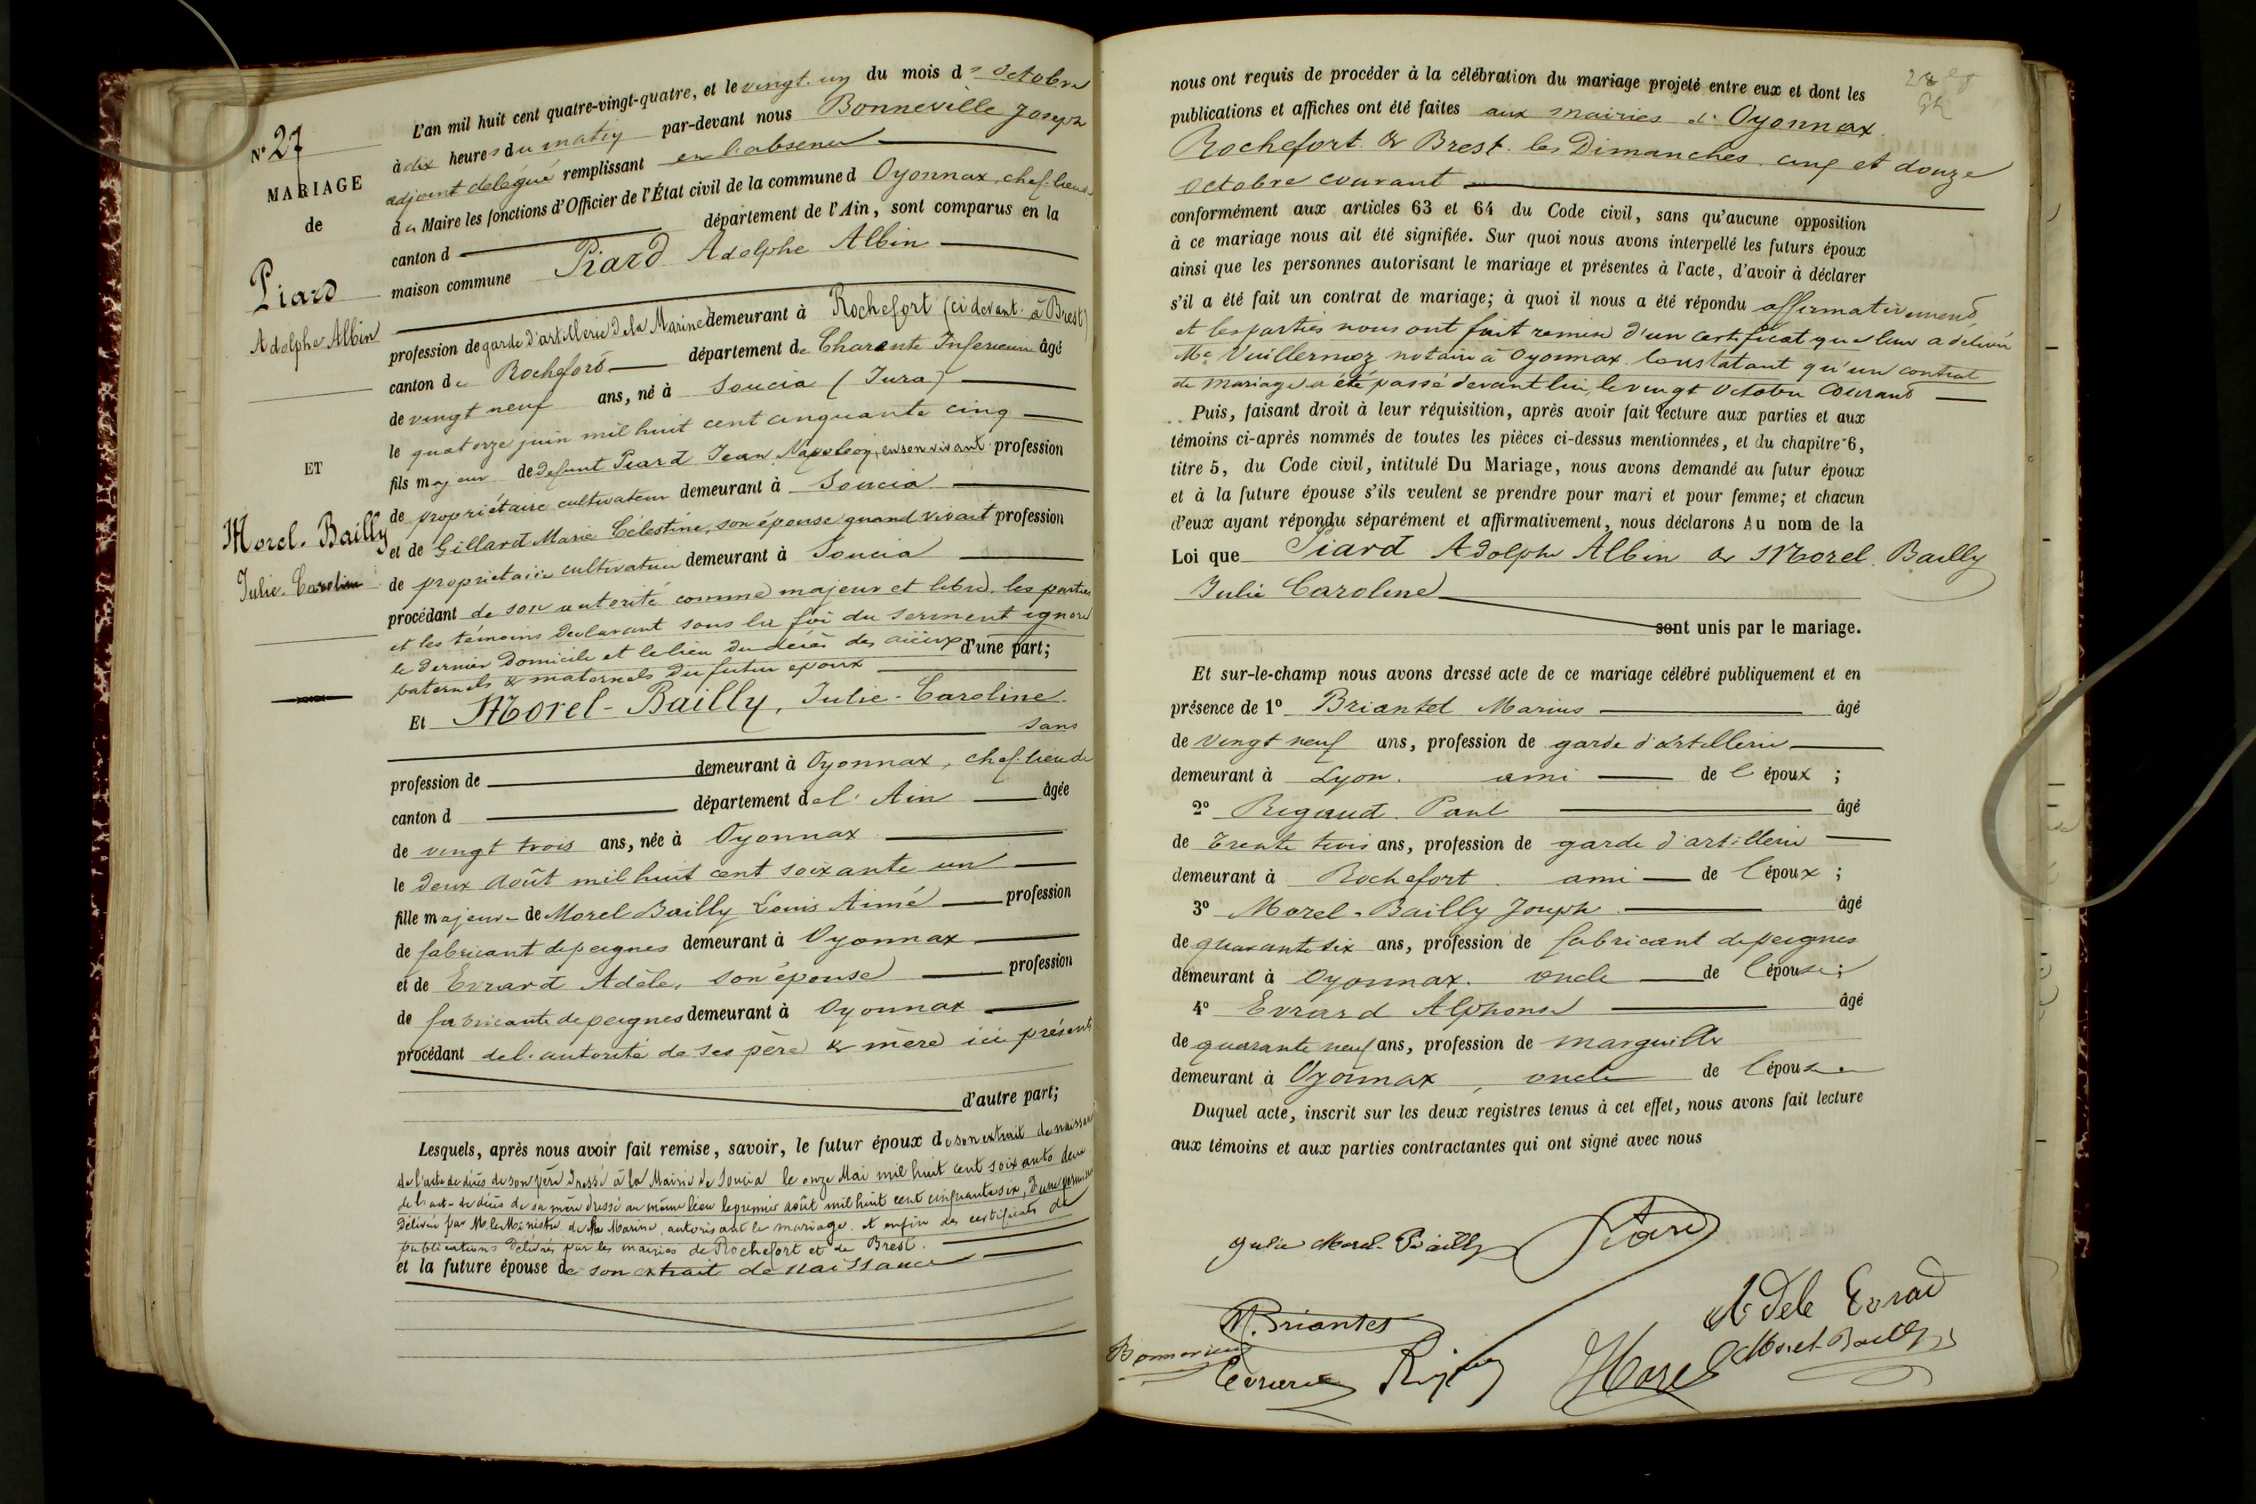 N° 27
MARIAGE
de
Piard
Adolphe Albin
ET
Morel-Bailly
Julie-Caroline
L'an mil huit cent quatre-vingt-quatre, et le vingt-un du mois d'octobre
à dix heures du matin par-devant nous Bonneville Joseph
adjoint délégué remplissant en l'absence
du Maire les fonctions d'Officier de l'État civil de la commune d Oyonnax, chef-lieu de
canton d département de l'Ain, sont comparus en la
maison commune Piard Adolphe Albin
profession de garde d'artillerie de la Marine demeurant à Rochefort (ci devant à Brest)
canton de Rochefort département de Charente Inférieure âgé
de vingt neuf ans, né à Soucia (Jura)
le quatorze juin mil huit cent cinquante cinq
fils majeur de defunt Piard Jean Napoléon, en son vivant profession
de propriétaire cultivateur demeurant à Soucia
et de Gillard Marie Célestine, son épouse quand vivait profession
de propriétaire cultivateur demeurant à Soucia
procédant de son autorité comme majeur et libre, les parties
et les témoins déclarant sous la foi du serment ignorer
le dernier domicile et le lieu du décès des aïeux d'une part;
paternels & maternels du futur époux
Et Morel-Bailly, Julie-Caroline
sans
profession de demeurant à Oyonnax, chef-lieu de
canton d département de l'Ain âgée
de vingt trois ans, née à Oyonnax
le deux août mil huit cent soixante un
fille majeure de Morel Bailly Louis Aimé profession
de fabricant de peignes demeurant à Oyonnax
et de Evrard Adèle, son épouse profession
de fabricante de peignes demeurant à Oyonnax
procédant de l'autorité de ses père & mère ici présents
d'autre part;
Lesquels, après nous avoir fait remise, savoir, le futur époux de son extrait de naissance
de l'acte de décès de son père dressé à la Mairie de Soucia le onze Mai mil huit cent soixante deux
de l'acte de décès de sa mère dressé au même lieu le premier août mil huit cent cinquante six, d'une permission
délivrée par M. le Ministre de la Marine, autorisant le mariage, et enfin des certificats de
publications délivrés par les mairies de Rochefort et de Brest.
et la future épouse de son extrait de naissance
nous ont requis de procéder à la célébration du mariage projeté entre eux et dont les
publications et affiches ont été faites aux mairies d'Oyonnax
Rochefort & Brest les Dimanches cinq et douze
octobre courant
conformément aux articles 63 et 64 du Code civil, sans qu'aucune opposition
à ce mariage nous ait été signifiée. Sur quoi nous avons interpellé les futurs époux
ainsi que les personnes autorisant le mariage et présentes à l'acte, d'avoir à déclarer
s'il a été fait un contrat de mariage; à quoi il nous a été répondu affirmativement
et les parties nous ont fait remise d'un certificat que leur a délivré
Me Vuillermoz notaire à Oyonnax constatant qu'un contrat
de mariage a été passé devant lui, le vingt octobre courant
Puis, faisant droit à leur réquisition, après avoir fait lecture aux parties et aux
témoins ci-après nommés de toutes les pièces ci-dessus mentionnées, et du chapitre 6,
titre 5, du Code civil, intitulé Du Mariage, nous avons demandé au futur époux
et à la future épouse s'ils veulent se prendre pour mari et pour femme; et chacun
d'eux ayant répondu séparément et affirmativement, nous déclarons Au nom de la
Loi que Piard Adolphe Albin & Morel Bailly
Julie Caroline
sont unis par le mariage.
Et sur-le-champ nous avons dressé acte de ce mariage célébré publiquement et en
présence de 1° Briantet Marius âgé
de vingt neuf ans, profession de garde d'artillerie
demeurant à Lyon. ami de l'époux ;
2° Rigaud Paul âgé
de trente trois ans, profession de garde d'artillerie
demeurant à Rochefort. ami de l'époux ;
3° Morel-Bailly Joseph âgé
de quarante six ans, profession de fabricant de peignes
demeurant à Oyonnax. oncle de l'épouse ;
4° Evrard Alphonse âgé
de quarante neuf ans, profession de marguiller
demeurant à Oyonnax, oncle de l'épouse
Duquel acte, inscrit sur les deux registres tenus à cet effet, nous avons fait lecture
aux témoins et aux parties contractantes qui ont signé avec nous
Julie Morel-Bailly Piard
M. Briantet Adele Evrard
Bonneville Evrard Rigaud Morel Morel-Bailly